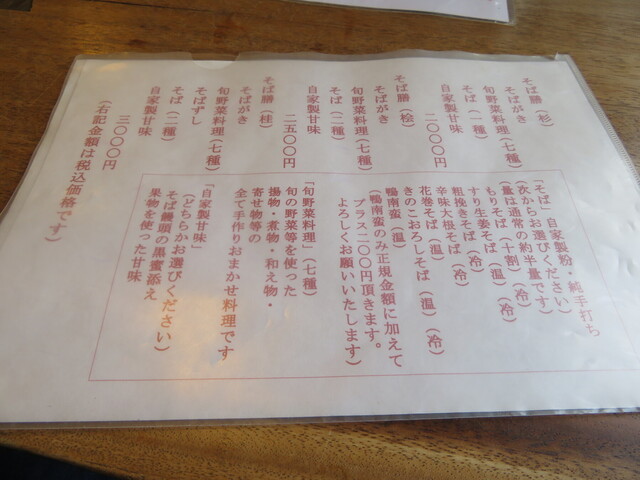 そば膳（杉）
そばがき
旬野菜料理（七種）
そば（一種）
自家製甘味
二〇〇〇円
そば膳（桧）
そばがき
旬野菜料理（七種）
そば（二種）
自家製甘味
二五〇〇円
そば膳（桂）
そばがき
旬野菜料理（七種）
そばずし
そば（二種）
自家製甘味
三〇〇〇円
（右記金額は税込価格です）
「そば」自家製粉・純手打ち
（次からお選びください）
（量は通常の約半量です）
もりそば（十割）（冷）
すり生姜そば（温）（冷）
粗挽きそば（冷）
辛味大根そば（冷）
花巻そば（温）
きのこおろしそば（温）（冷）
鴨南蛮（温）
（鴨南蛮のみ正規金額に加えて
プラス二〇〇円頂きます。
よろしくお願いいたします）
「旬野菜料理」（七種）
旬の野菜等を使った
揚物・煮物・和え物・
寄せ物等の
全て手作りおまかせ料理です
「自家製甘味」
（どちらかお選びください）
そば饅頭の黒蜜添え
果物を使った甘味